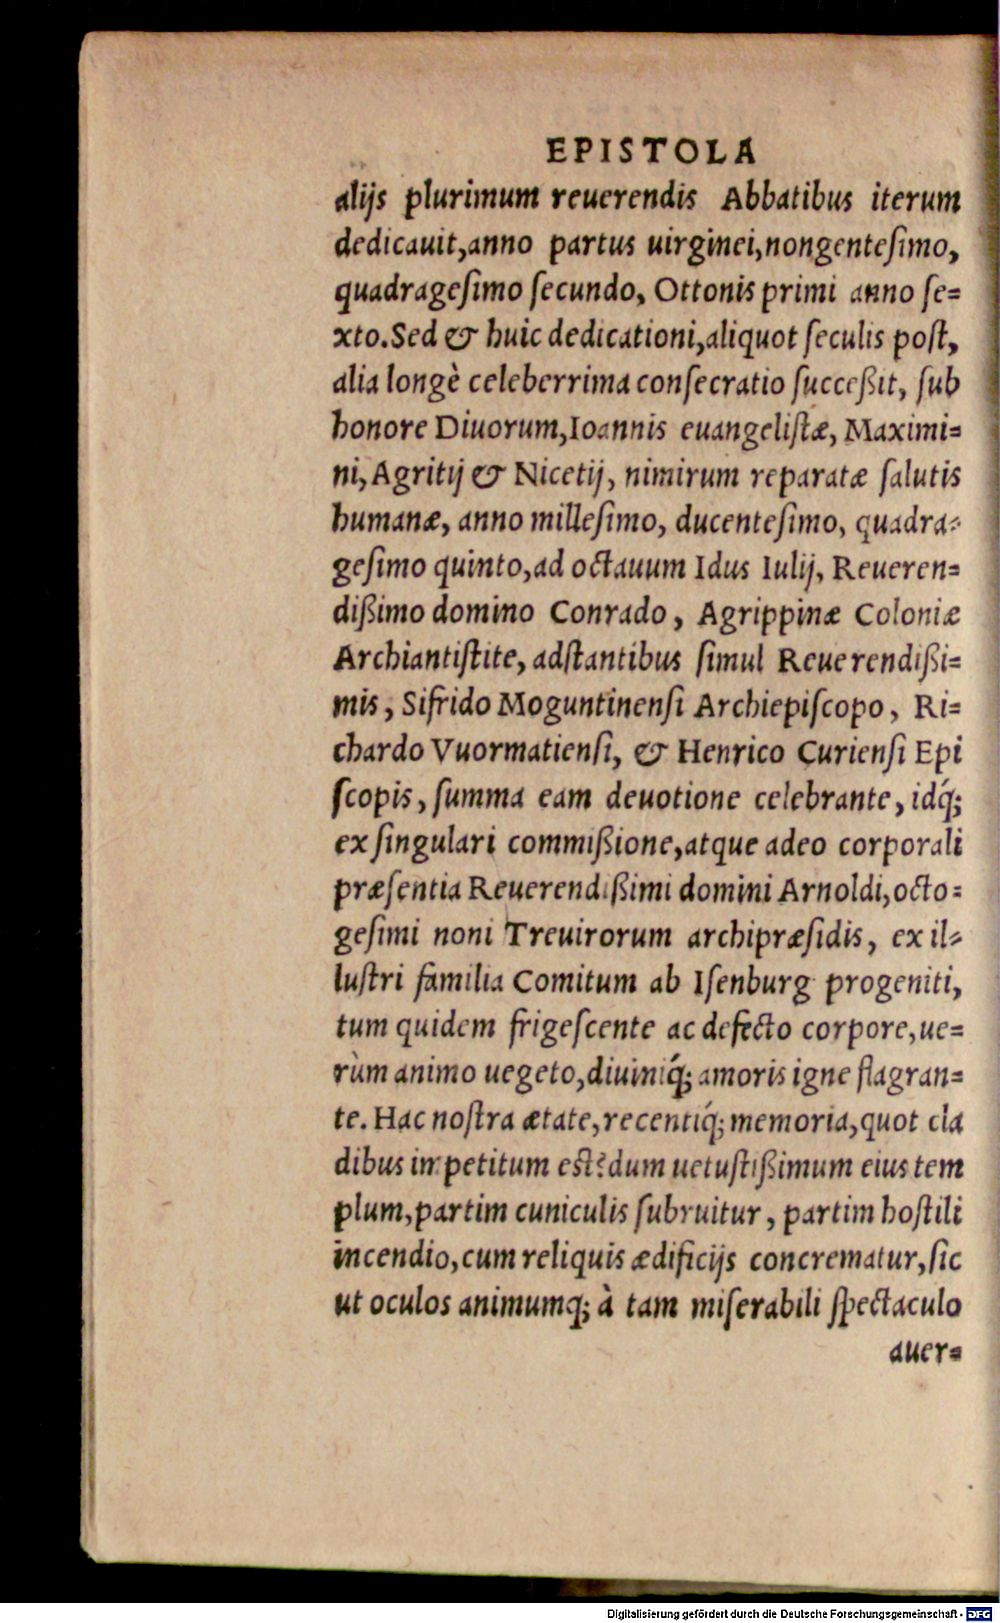 EPISTOLA
alijs plurimum reuerendis Abbatibus iterum
dedicauit,anno partus uirginei,nongentesimo,
quadragesimo secundo, Ottonis primi anno se=
xto.Sed & huic dedicationi,aliquot seculis post,
alia longè celeberrima consecratio succeßit, sub
honore Diuorum,Ioannis euangelistæ, Maximi=
ni,Agritij & Nicetij, nimirum reparatæ salutis
humanæ, anno millesimo, ducentesimo, quadra=
gesimo quinto,ad octauum Idus Iulij, Reueren=
dißimo domino Conrado, Agrippinæ Coloniæ
Archiantistite, adstantibus simul Reuerendißi=
mis, Sifrido Moguntinensi Archiepiscopo, Ri=
chardo Vuormatiensi, & Henrico Curiensi Epi
scopis, summa eam deuotione celebrante, idq́;
ex singulari commißione,atque adeo corporali
præsentia Reuerendißimi domini Arnoldi,octo=
gesimi noni Treuirorum archipræsidis, ex il=
lustri familia Comitum ab Isenburg progeniti,
tum quidem frigescente ac defecto corpore,ue=
rùm animo uegeto,diuiniq́; amoris igne flagran=
te. Hac nostra ætate,recentiq́; memoria,quot cla
dibus impetitum est?dum uetustißimum eius tem
plum,partim cuniculis subruitur, partim hostili
incendio,cum reliquis ædificijs concrematur,sic
ut oculos animumq; à tam miserabili spectaculo
auer=
Digitalisierung gefördert durch die Deutsche Forschungsgemeinschaft - DFG